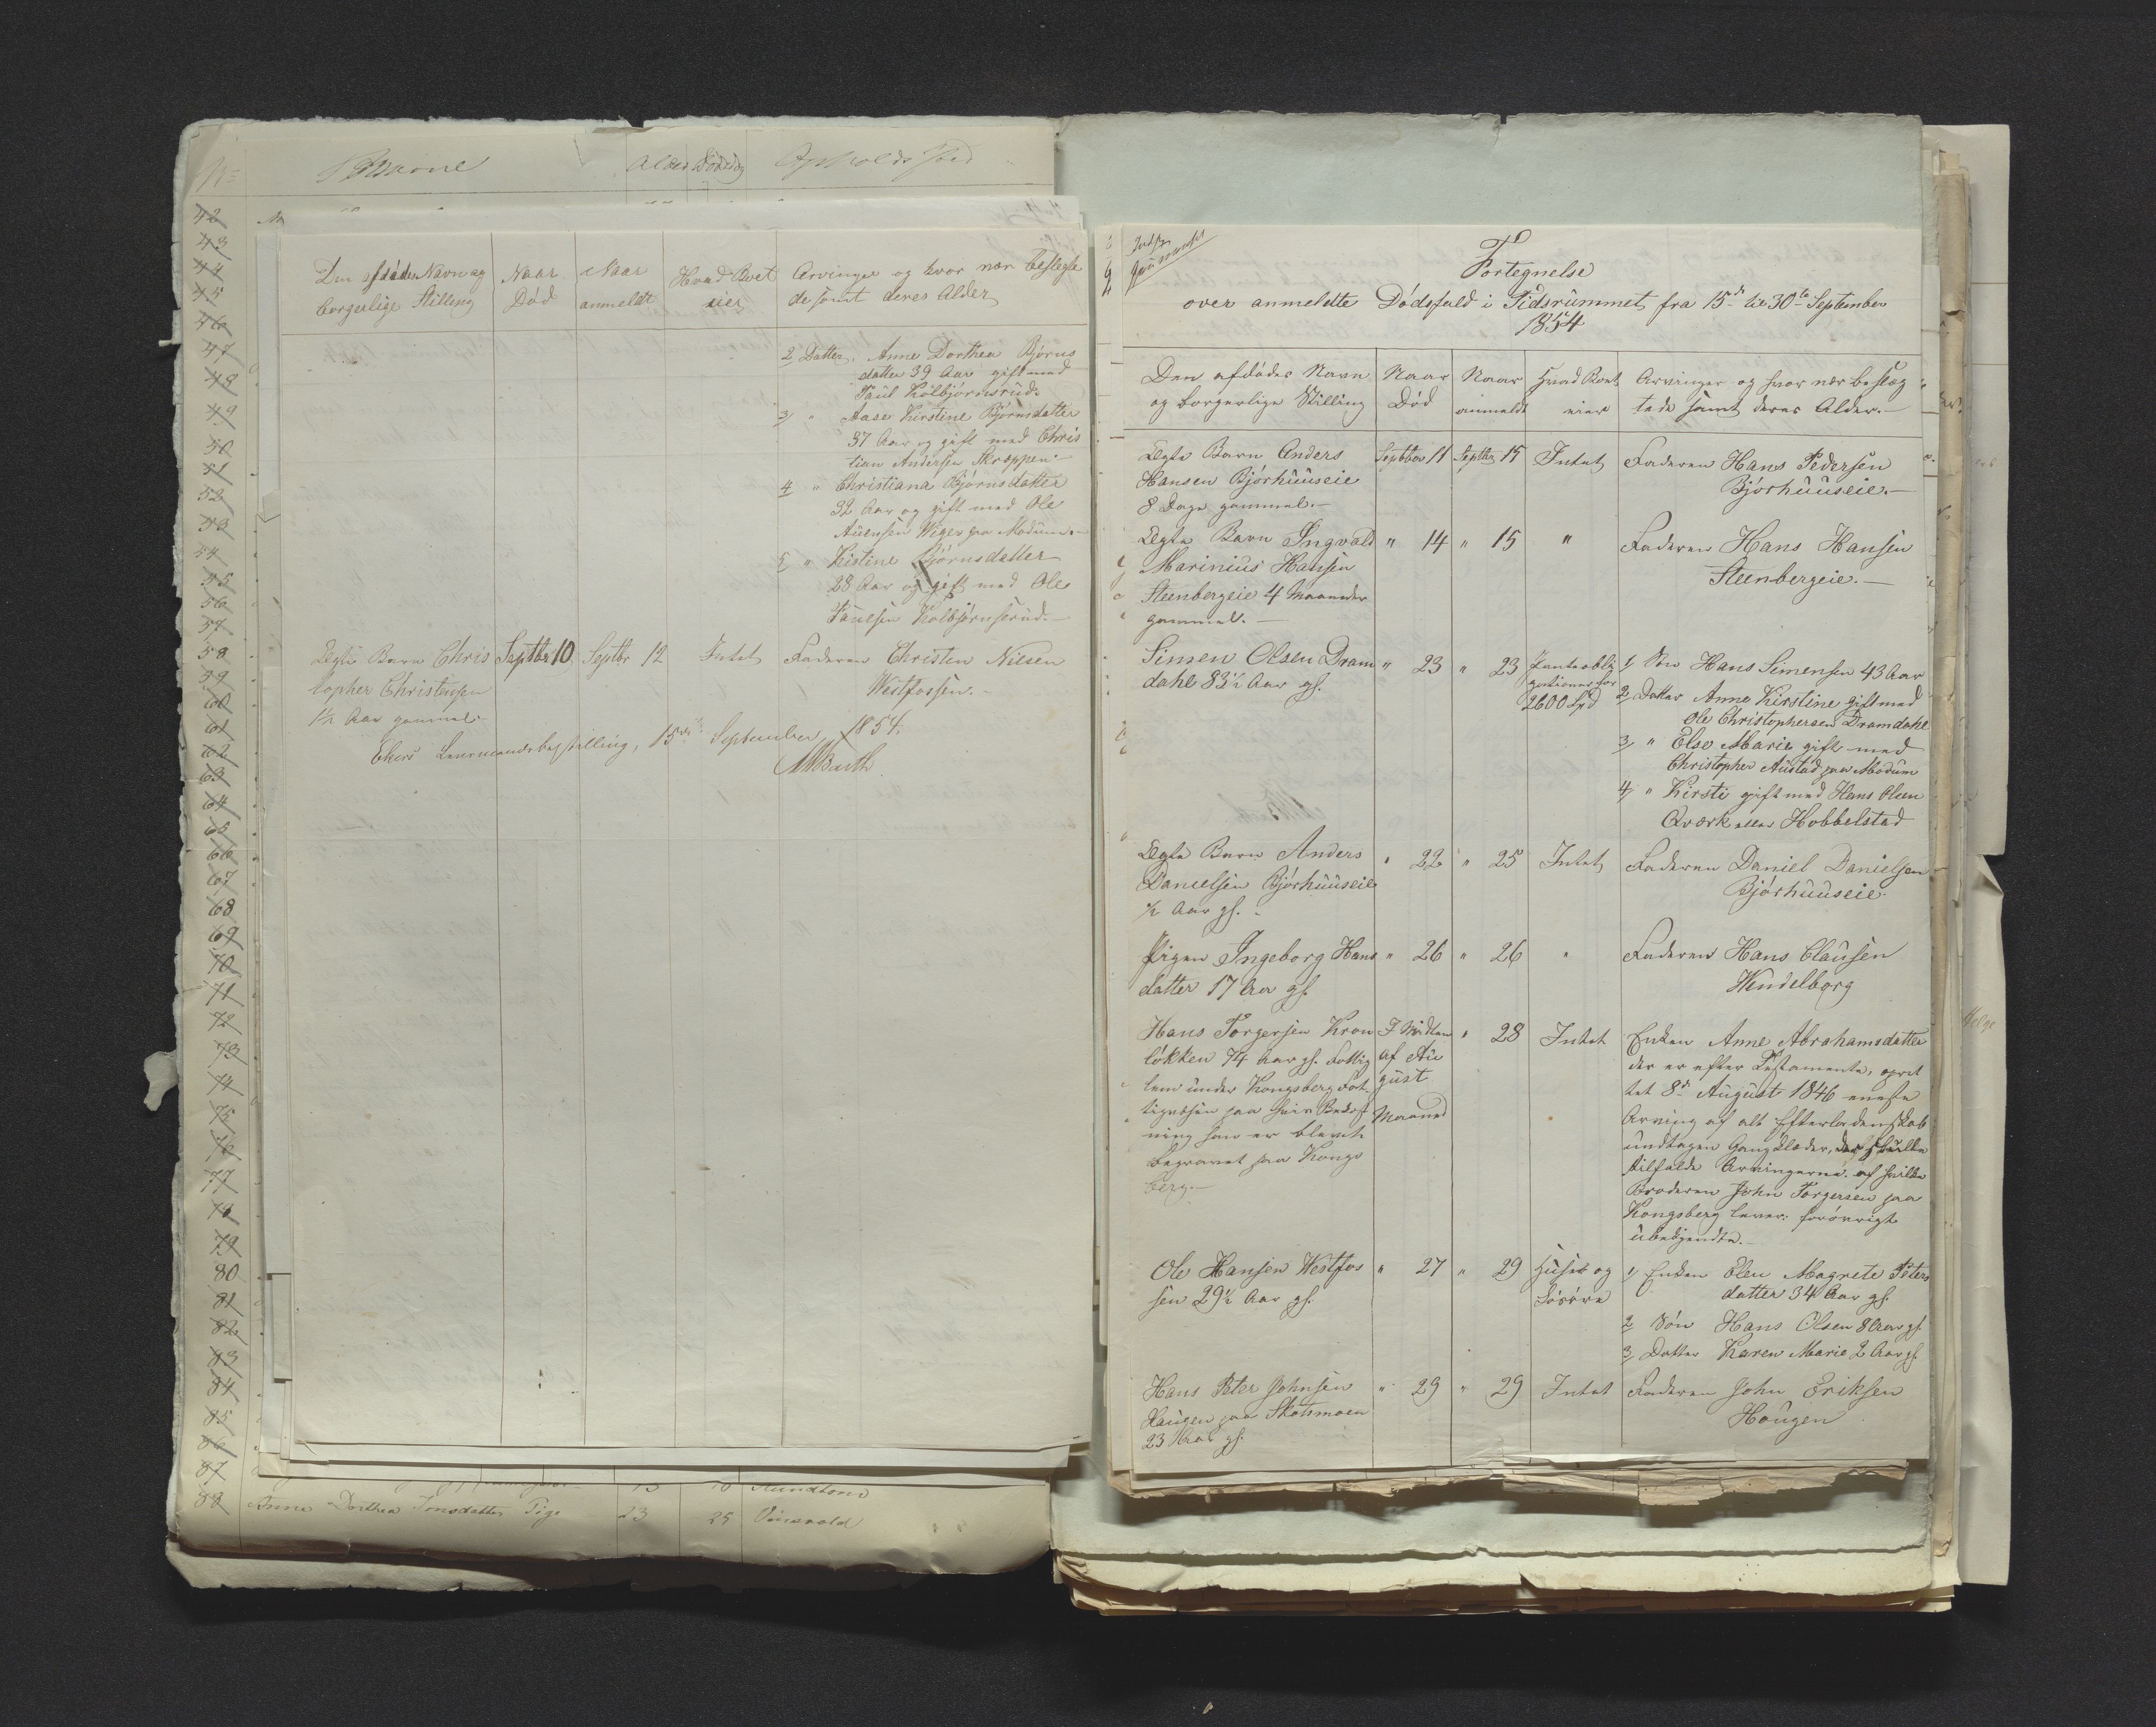 No Navne Alder Dødsdag Opholdssted
42
43
44
45
46
47
48
49
50
51
52
53
54
55
56
57
58
59
60
61
62
63
64
65
66
67
68
69
70
71
72
73
74
75
76
77
78
79
80
81
82
83
84
85
86
87
88 Anne Dorthea Tonsdatter Pige 23 25
Den afdødes Navn og
borgerlige Stilling
Naar
Død
Naar
anmeldt
Hvad Boet
eier
Arvinger og hvor nær beslegte
de samt deres Alder
2 Datter. Anne Dorthea Bjørns
datter 39 Aar gift med
Paul Kolbjørnsrud.
3 " Aase Kirstine Bjørnsdatter
37 Aar og gift med Chris
tian Andersen Skroppen.
4 " Christiana Bjørnsdatter
32 Aar og gift med Ole
Wiger paa Modum.
5 " Kistine Bjørnsdatter
28 Aar og gift med Ole
Paulsen Kolbjørnsrud.
Ægte Barn Chris
topher Christensen
1½ Aar gammel.
Septbr 10 Septbr 12 Intet
Faderen Christen Nilsen
Westfossen.
Ekers Lensmandsbestilling, 15de September 1854.
MBarth
Fortegnelse
over anmeldte Dødsfald i Tidsrummet fra 15de til 30te September
1854
Den afdødes Navn
og borgerlige Stilling
Naar
Død
Naar
anmeldt
Hvad Boet
eier
Arvinger og hvor nær beslæg
tede samt deres Alder.
Ægte Barn Anders
Hansen Bjørhuuseie
8 Dage gammel.
Septbr 11 Septbr 15 Intet
Faderen Hans Pedersen
Bjørhuuseie.
Ægte Barn Ingvald
Marinius Hansen
Steenbergeie 4 Maaneder
gammel.
" 14 " 15 "
Faderen Hans Hansen
Steenbergeie.
Simen Olsen Dram
dahl 83½ Aar gl.
" 23 " 23
Panteobli
gationer for
2600 Spd
1 Søn Hans Simensen 43 Aar
2 Datter Anne Kirstine gift med
Ole Christophersen Dramdahl
3 " Else Marie gift med
Christopher Austad paa Modum
4 " Kirsti gift med Hans Olsen
Qværk eller Hobbelstad
Ægte Barn Anders
Danielsen Bjørhuuseie
½ Aar gl.
" 22 " 25 Intet
Faderen Daniel Danielsen
Bjørhuuseie.
Pigen Ingeborg Hans
datter 17 Aar gl.
" 26 " 26 "
Faderen Hans Clausen
Wendelborg
Hans Torgersen Kron
løkken 74 Aar gl. Fattig
lem under Kongsberg Fat
tigvæsen paa hvis Bekost
ning han er blevet
begravet paa Kongs
berg.
I Midten
af Au
gust
Maaned
" 28 Intet
Enken Anne Abrahamsdatter
der er efter Testamente, opret
tet 8de August 1846 eneste
Arving af alt Efterladenskab
undtagen Gangklæder, der skulle
tilfalde Arvingerne. af hvilke
Broderen John Torgersen paa
Kongsberg lever. forøvrigt
ubekjendte.
Ole Hansen Westfos
sen 29½ Aar gl.
" 27 " 29
Huset og
Løsøre
1 Enken Elen Magrete Peters
datter 34 Aar gl.
2 Søn Hans Olsen 8 Aar gl.
3 Datter Karen Marie 2 Aar gl.
Hans Peter Johnsen
Haugen paa Skotsmoen
23 Aar gl.
" 29 " 29 Intet
Faderen John Eriksen
Hougen